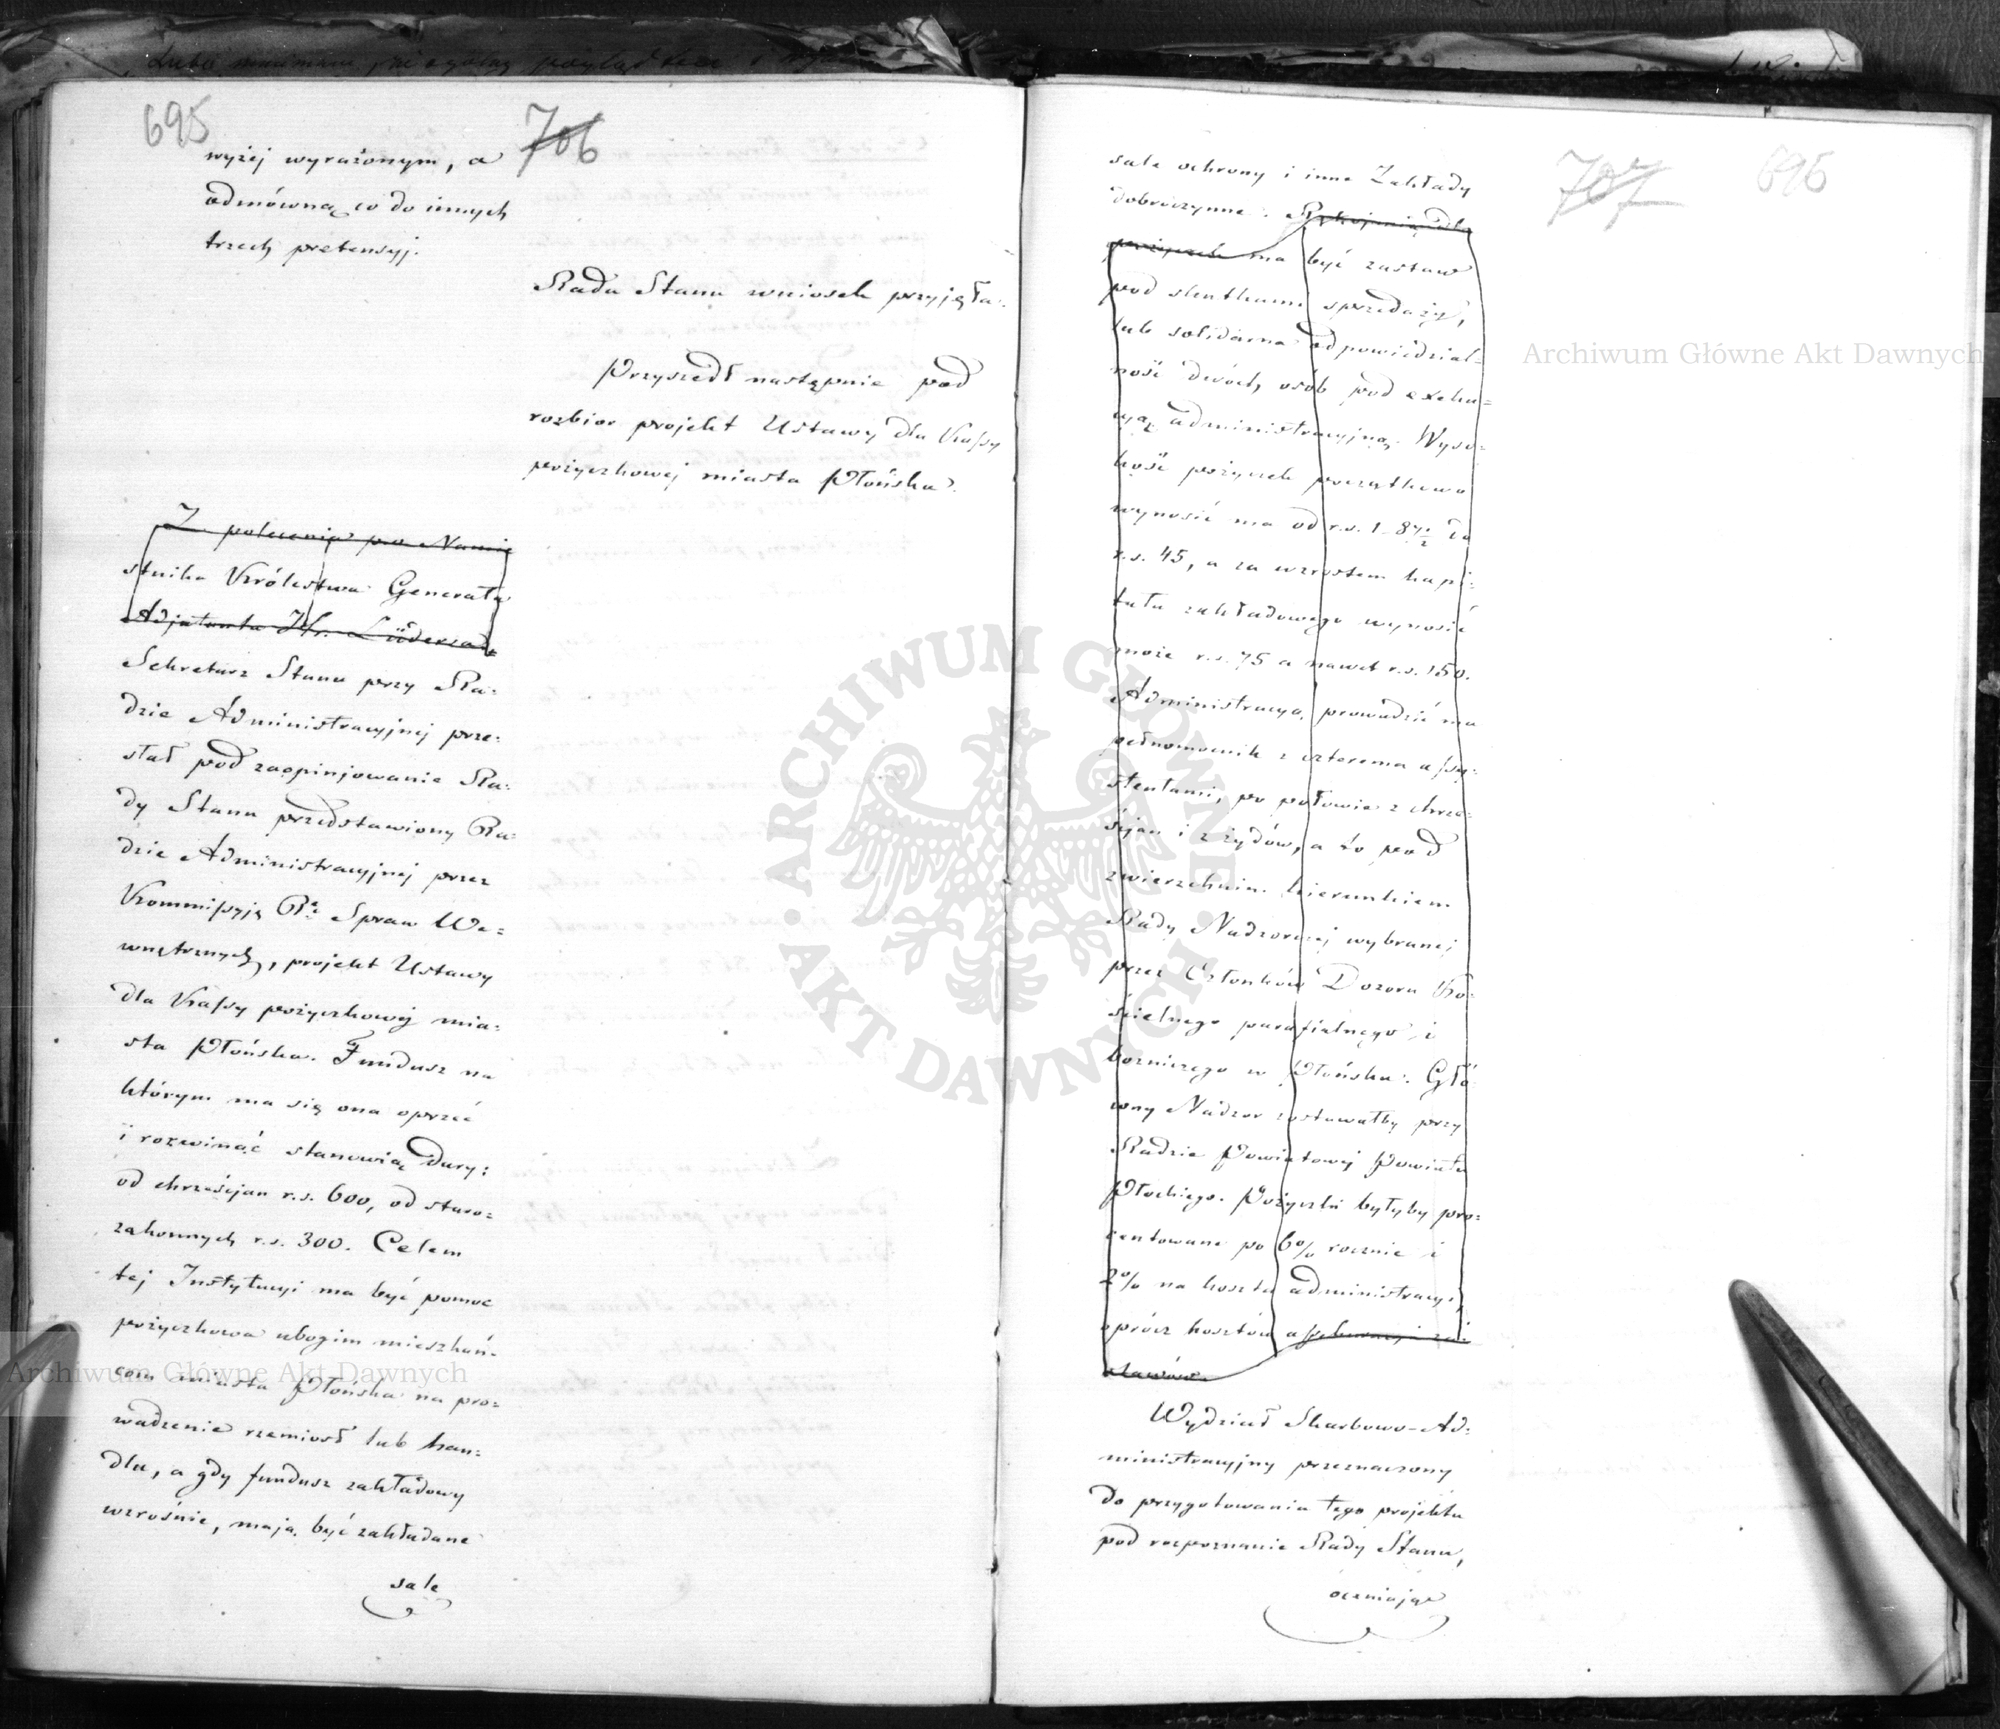 695
706
wyżej wyrażonym, a
odmówną co do innych
trzech pretensyj.
Rada Stanu wniosek przyjęła.
Przyszedł następnie pod
rozbior projekt Ustawy dla Kassy
pożyczkowej miasta Płońska.
Z polecenia p.o. Namie
stnika Królestwa Generała
Adjutanta Hr. Lüdersa
Sekretarz Stanu przy Ra-
dzie Administracyjnej prze-
słał pod zaopinjowanie Ra-
dy Stanu przedstawiony Ra-
dzie Administracyjnej przez
Kommissyję R. Spraw We-
wnętrznych, projekt Ustawy
dla Kassy pożyczkowej mia-
sta Płońska. Fundusz na
którym ma się ona oprzeć
i rozwinąć stanowią dary:
od chrześcijan r.s. 600, od staro-
zakonnych r.s. 300. Celem
tej Instytucyi ma być pomoc
pożyczkowa ubogim mieszkań-
com miasta Płońska na pro-
wadzenie rzemiosł lub han-
dlu, a gdy fundusz zakładowy
wzrośnie, mają być zakładane
sale
707
696
sale ochrony i inne Zakłady
dobroczynne. Rękojmią dla
pożyczek ma być zastaw
pod skutkami sprzedaży,
lub solidarna odpowiedzial-
ność dwóch osób pod exeku-
cyją administracyjną. Wyso-
kość pożyczek początkowo
wynosić ma od r.s. 1-87½ do
r.s. 45, a za wzrostem kapi-
tału zakładowego wynosić
może r.s. 75 a nawet r.s. 150.
Administracyą prowadzić ma
pełnomocnik z czterema assy-
stentami, po połowie z chrze-
ścijan i z żydów, a to pod
zwierzchnim kierunkiem
Rady Nadzorczej wybranej
przez Członków Dozoru Ko-
ścielnego parafialnego i
bożniczego w Płońsku. Głó-
wny Nadzor zostawałby przy
Radzie Powiatowej Powiatu
Płockiego. Pożyczki byłyby pro-
centowane po 6% rocznie i
2% na koszta administracyi,
oprócz kosztów assekuracyi za-
stawów.
Wydział Skarbowo-Ad-
ministracyjny przeznaczony
do przygotowania tego projektu
pod rozpoznanie Rady Stanu,
oceniając
Archiwum Główne Akt Dawnych
Archiwum Główne Akt Dawnych
ARCHIWUM GŁÓWNE AKT DAWNYCH